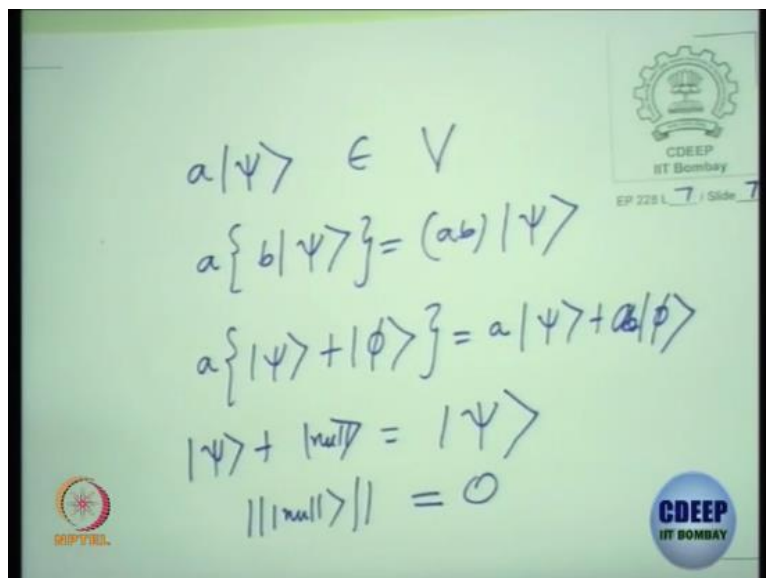 CDEEP
IIT Bombay
EP 228 L 7 / Slide 7
a|ψ⟩ ∈ V
a{ b|ψ⟩} = (ab) |ψ⟩
a{|ψ⟩ + |ϕ⟩} = a|ψ⟩ + a|ϕ⟩
|ψ⟩ + |null⟩ = |ψ⟩
|||null⟩|| = 0
NPTEL
CDEEP
IIT BOMBAY